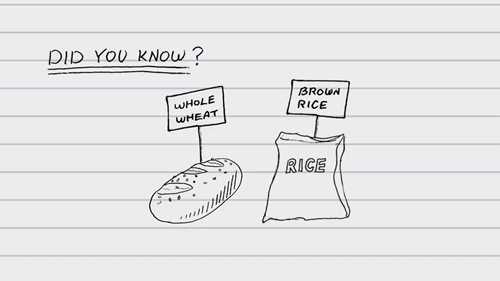 DID YOU KNOW?
WHOLE
WHEAT
BROWN
RICE
RICE